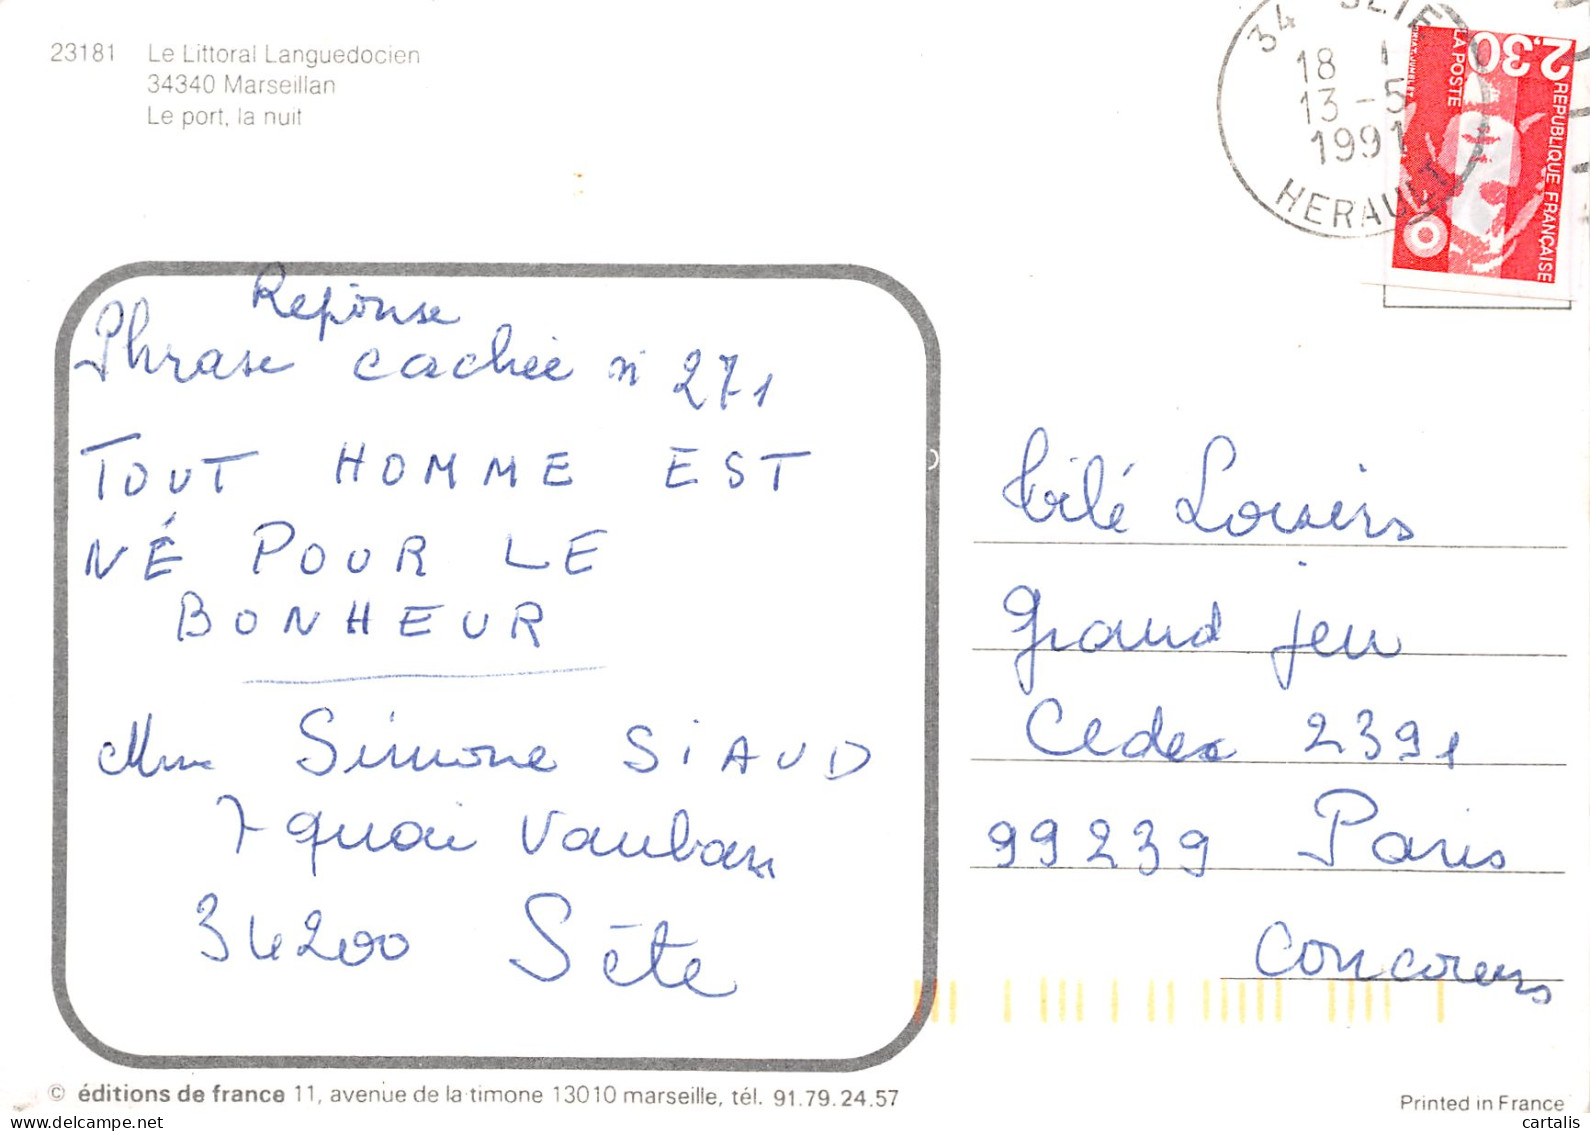 23181 Le Littoral Languedocien
34340 Marseillan
Le port, la nuit
34 SETE
18
13-5
1991
HERAULT
2,30
LA POSTE
REPUBLIQUE FRANÇAISE
Reponse
Phrase cachée n° 271
TOUT HOMME EST
NÉ POUR LE
BONHEUR
Mme Simone SIAUD
7 quai Vauban
34200 Sète
Télé Loisirs
Grand jeu
Cedex 2391
99239 Paris
Concours
© éditions de france 11, avenue de la timone 13010 marseille, tél. 91.79.24.57
Printed in France
cartalis